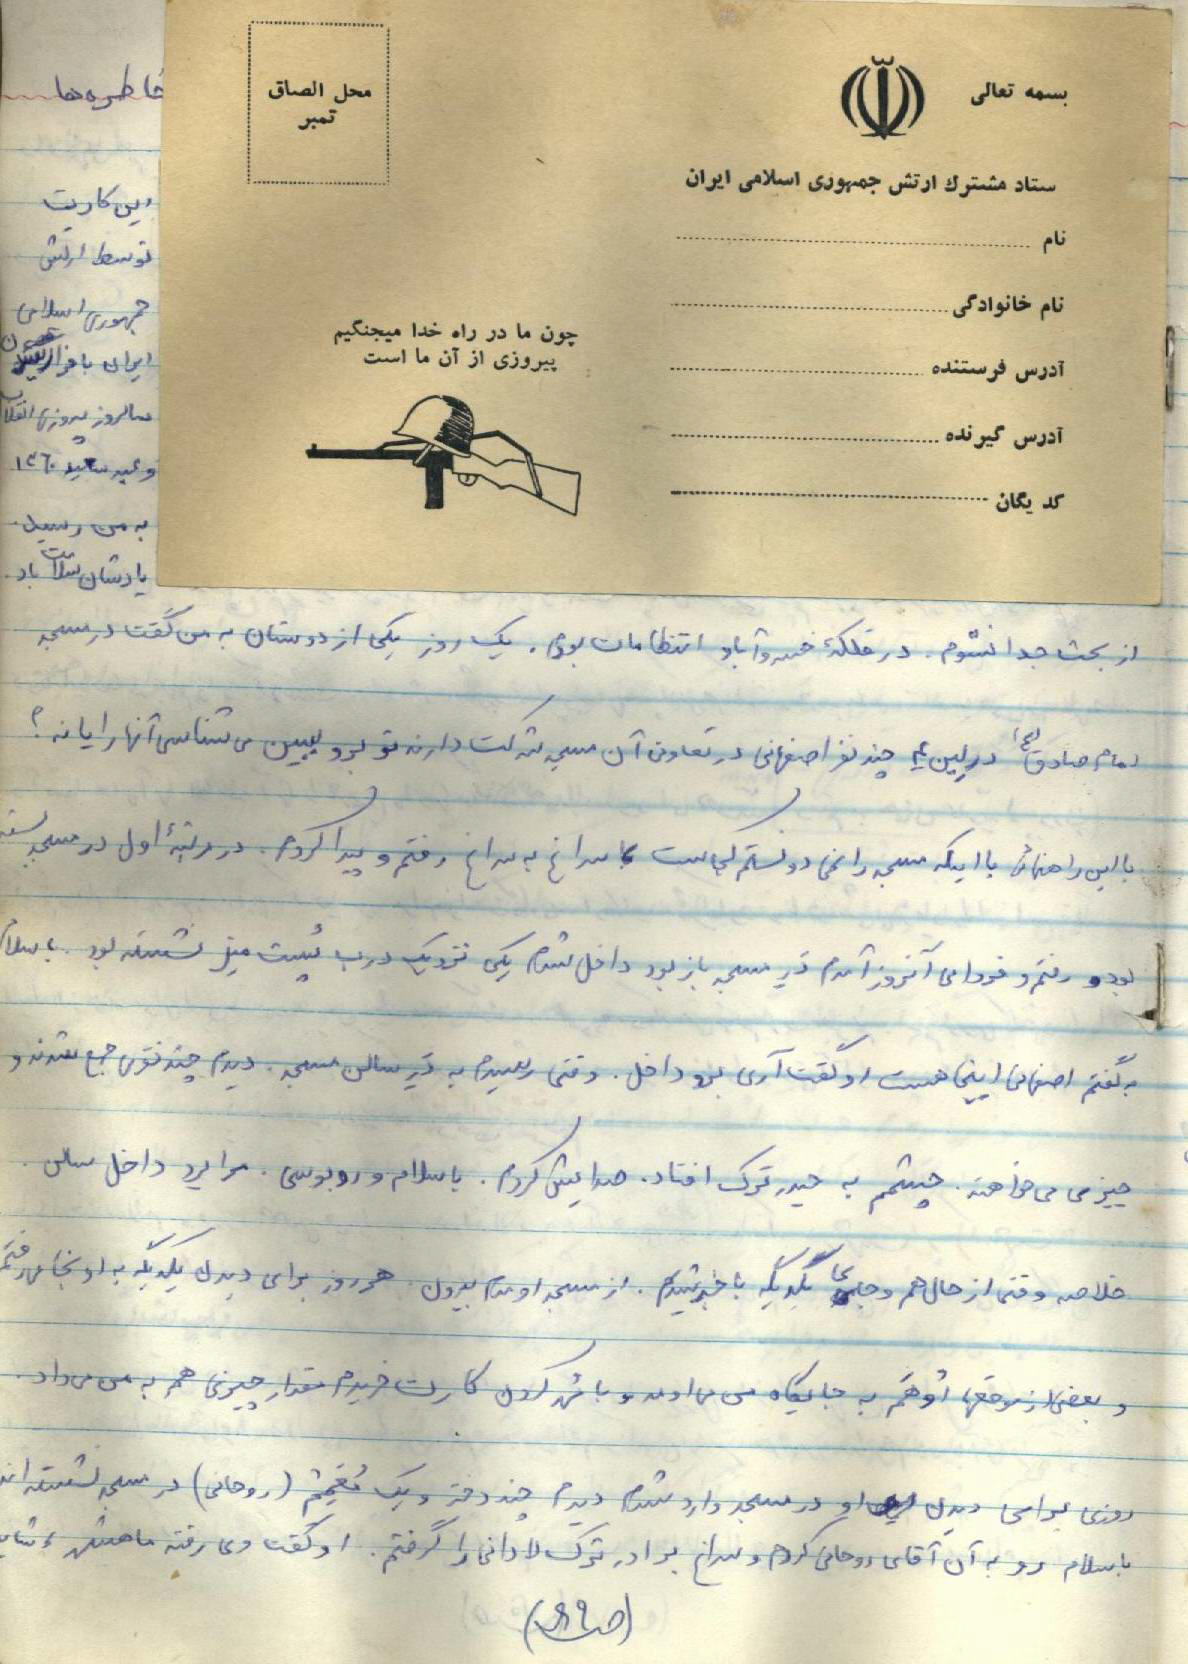 خاطره‌ها
بسمه تعالی
محل الصاق
تمبر
ستاد مشترك ارتش جمهوری اسلامی ایران
نام
نام خانوادگی
آدرس فرستنده
آدرس گیرنده
کد یگان
چون ما در راه خدا میجنگیم
پیروزی از آن ما است
این کارت
توسط ارتش
جمهوری اسلامی
ایران با فرا رسیدن
سالروز پیروزی انقلاب
و عید سعید ۱۳۶۰
به من رسید.
یادشان سلامت باد.
از بحث جدا نشوم. در فلکهٔ خسروآباد انتظامات بودم. یک روز یکی از دوستان به من گفت در مسجد
امام صادق (ع) در لین یک چند نفر اصفهانی در تعاونی آن مسجد شرکت دارند تو برو ببین می شناسی آنها را یا نه؟
با این راهنمائی با اینکه مسجد را نمی دونستم کجاست با سراغ به سراغ رفتم و پیدا کردم. در مرتبهٔ اول در مسجد بسته
بود و رفتم و فردای آنروز آمدم در مسجد باز بود داخل شدم یکی نزدیک درب پشت میز نشسته بود. با سلام
به گفتم اصفهانی اینجا هست او گفت آری برو داخل. وقتی رسیدم به در سالن مسجد. دیدم چند نفری جمع شدند و
چیزی می خواهند. چشمم به حیدر ترک افتاد. صدایش کردم. با سلام و روبوسی. مرا برد داخل سالن.
خلاصه وقتی از حال هم و جای یکدیگه با خبر شدیم. از مسجد اومدم بیرون. هر روز برای دیدن یکدیگه به اونجا می رفتم
و بعضی از موقعها اوهم به جایگاه من می اومد و با مهر کردن کارت خریدم مقدار چیزی هم به من می داد.
روزی برای دیدن او در مسجد وارد شدم دیدم چند دفتر و یک معمم (روحانی) در مسجد نشسته اند
با سلام رو به آن آقای روحانی کردم و سراغ برادر ترک لادانی را گرفتم. او گفت وی رفته ماهشهر